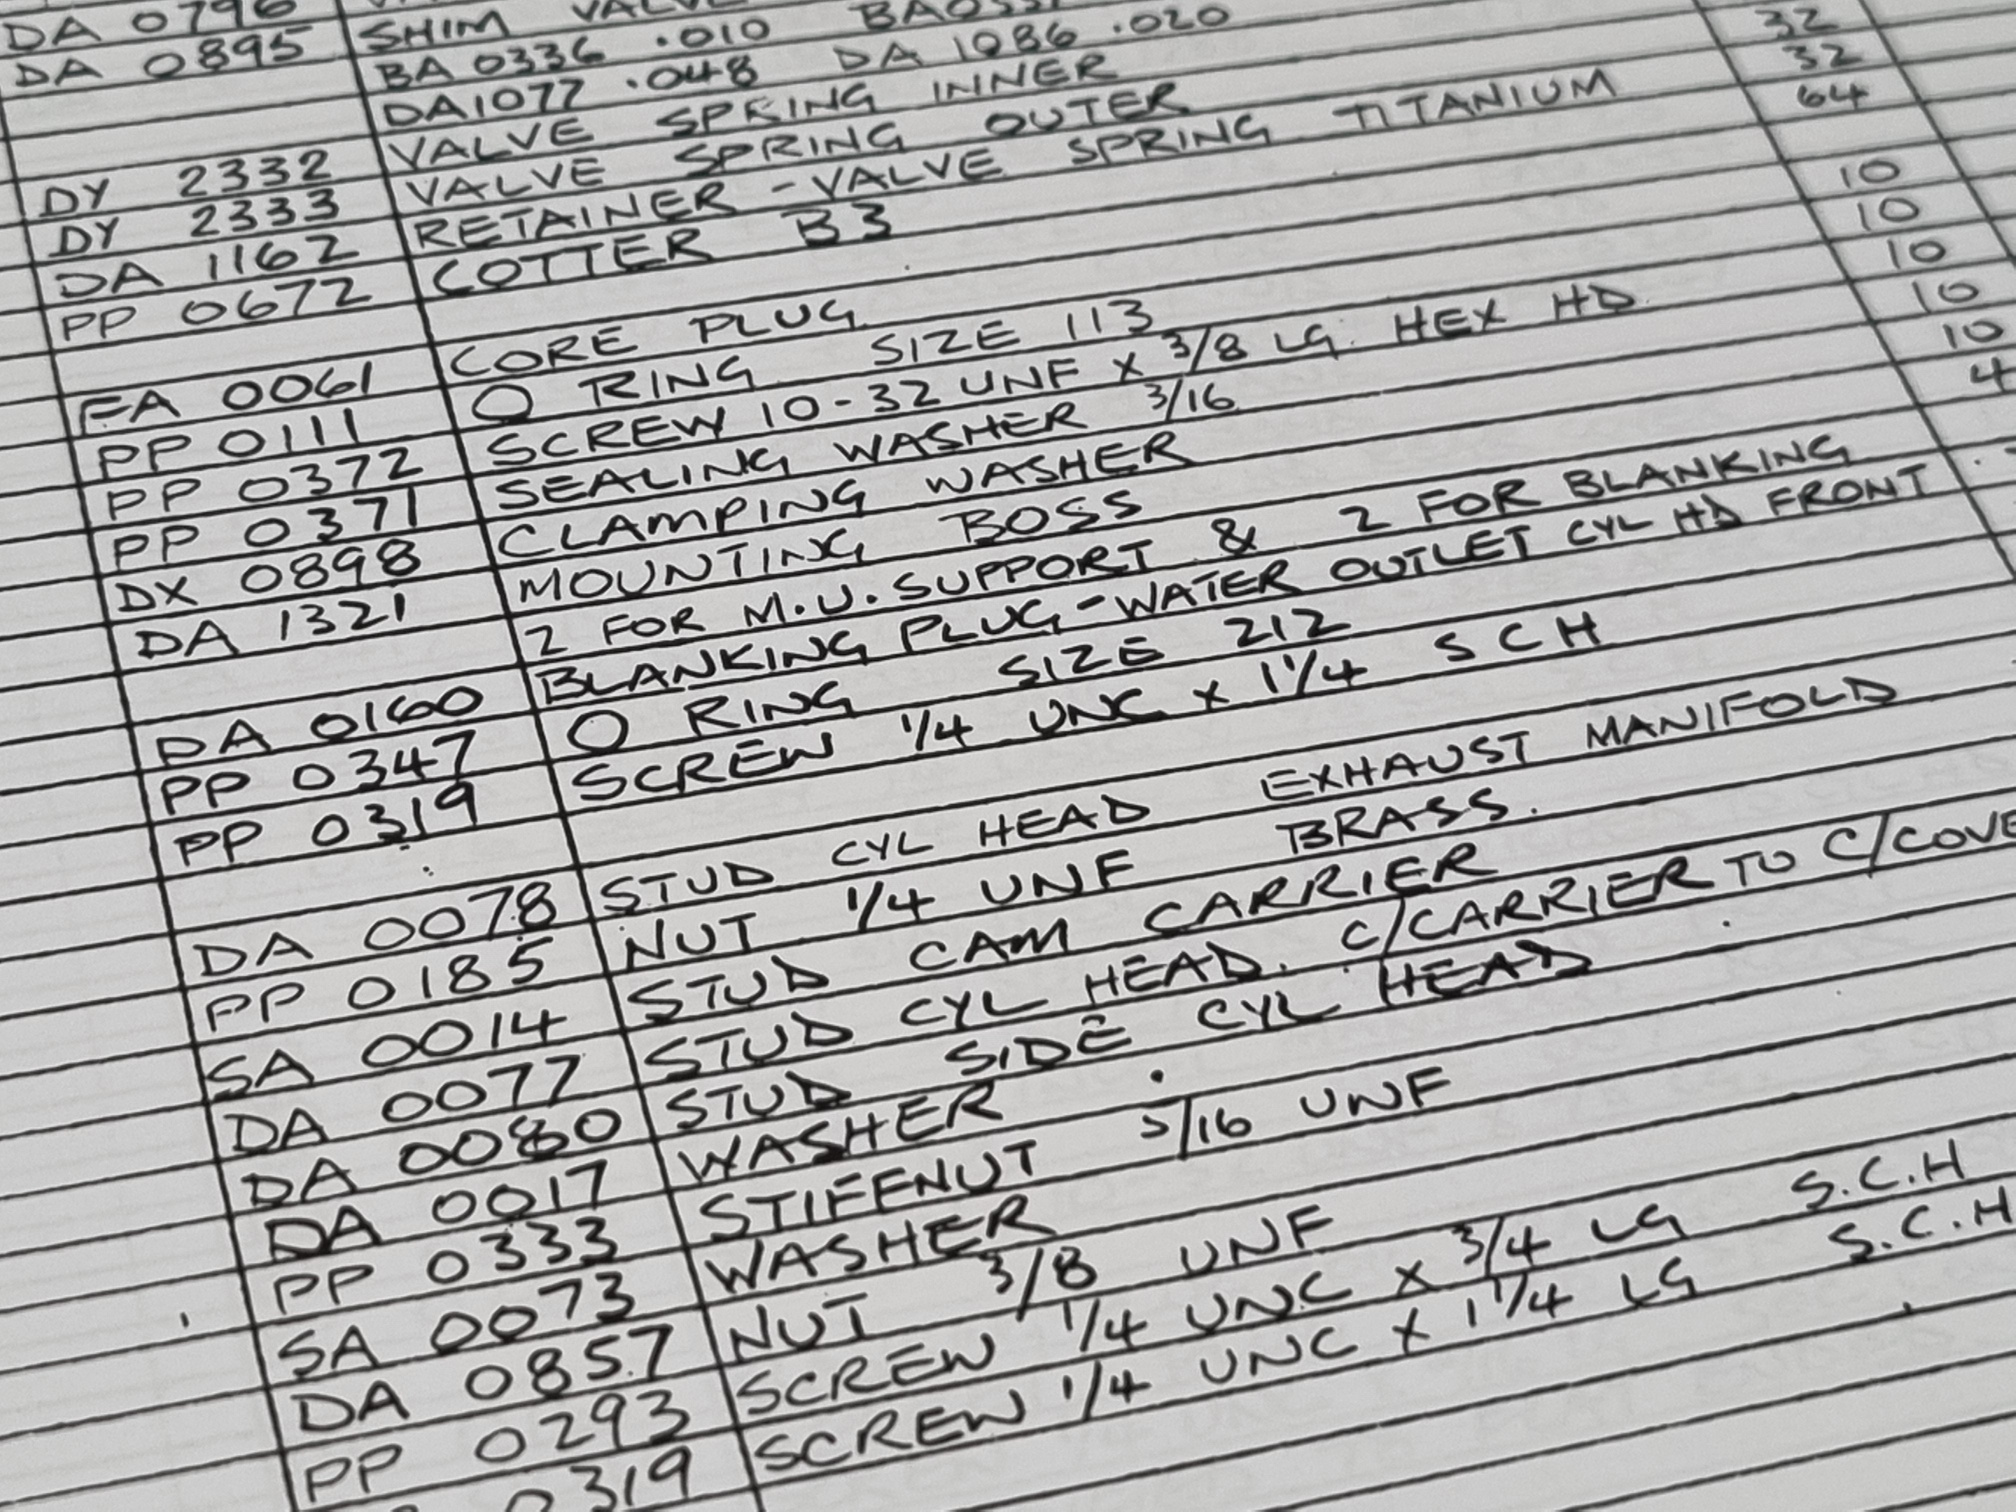 DA 0796
DA 0895 SHIM VALVE
BA 0336 .010
DA1077 .048 DA 1086 .020
DY 2332 VALVE SPRING INNER
DY 2333 VALVE SPRING OUTER 32
DA 1162 RETAINER - VALVE SPRING TITANIUM 32
PP 0672 COTTER B3 64
FA 0061 CORE PLUG 10
PP 0111 O RING SIZE 113 10
PP 0372 SCREW 10-32 UNF X 3/8 LG. HEX HD 10
PP 0371 SEALING WASHER 3/16 10
DX 0898 CLAMPING WASHER 10
DA 1321 MOUNTING BOSS 4
2 FOR M.U. SUPPORT & 2 FOR BLANKING
DA 0160 BLANKING PLUG - WATER OUTLET CYL HD FRONT
PP 0347 O RING SIZE 212
PP 0319 SCREW 1/4 UNC X 1 1/4 S C H
DA 0078 STUD CYL HEAD EXHAUST MANIFOLD
PP 0185 NUT 1/4 UNF BRASS.
SA 0014 STUD CAM CARRIER
DA 0077 STUD CYL HEAD. C/CARRIER TO C/COVE
DA 0080 STUD SIDE CYL HEAD
DA 0017 WASHER
PP 0333 STIFFNUT 5/16 UNF
SA 0073 WASHER
DA 0857 NUT 3/8 UNF
PP 0293 SCREW 1/4 UNC X 3/4 LG S.C.H
0319 SCREW 1/4 UNC X 1 1/4 LG S.C.H